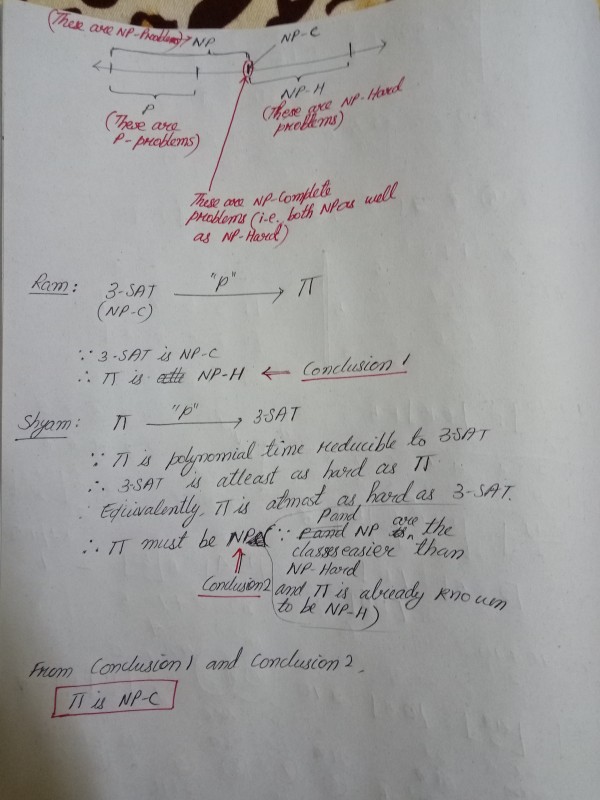 (These are NP-Problems)→ NP
NP-C
P
NP-H
(These are
P-problems)
(These are NP-Hard
problems)
These are NP-Complete
problems (i.e. both NP as well
as NP-Hard)
Ram: 3-SAT "P" → Π
(NP-C)
∵ 3-SAT is NP-C
∴ Π is NP-H ← Conclusion 1
Shyam: Π "P" → 3-SAT
∵ Π is polynomial time reducible to 3SAT
∴ 3-SAT is atleast as hard as Π.
Equivalently, Π is atmost as hard as 3-SAT.
∴ Π must be NP (∵ P and NP are the
classes easier than
NP-Hard
Conclusion 2
and Π is already known
to be NP-H)
From Conclusion 1 and Conclusion 2,
Π is NP-C